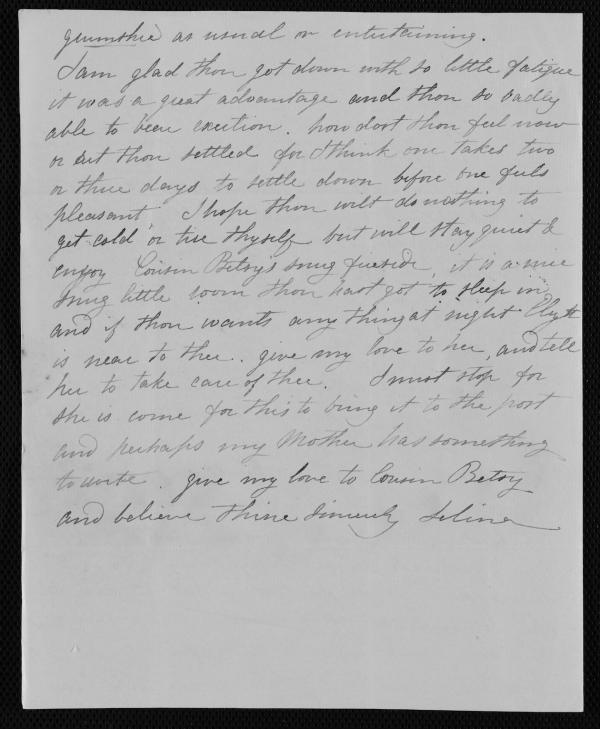 as usual or entertaining.
I am glad thou got down with so little fatigue
it was a great advantage and thou so badly
able to bear exertion. how dost thou feel now
or art thou settled for I think one takes two
or three days to settle down before one feels
pleasant, I hope thou wilt do nothing to
get cold or tire thyself but will stay quiet &
enjoy Cousin Betsy's snug fireside, it is a nice
snug little room thou hast got to sleep in,
and if thou wants any thing at night Elizth
is near to thee. give my love to her, and tell
her to take care of thee. I must stop for
she is come for this to bring it to the post
and perhaps my Mother has something
to write. give my love to Cousin Betsy
and believe thine sincerely Selina